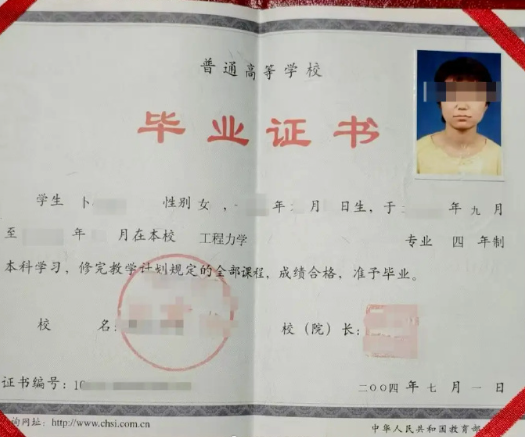 普通高等学校
毕业证书
学生 卜 性别 女 , 年 月 日生，于 年 九 月
至 年 月在本校 工程力学 专业 四 年制
本科学习，修完教学计划规定的全部课程，成绩合格，准予毕业。
校 名： 校（院）长：
证书编号：1 二〇〇四 年 七 月 一 日
询网址：http://www.chsi.com.cn 中华人民共和国教育部